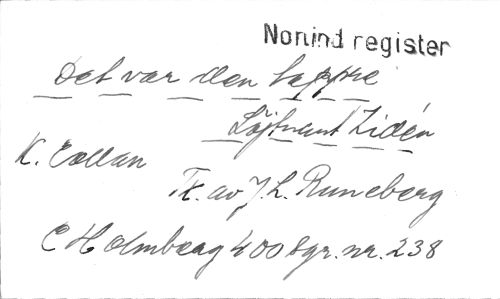 Nonind register
Det var den tappre
Löjtnant Zidén
K. Collan
Tx. av J. L. Runeberg
E Holmberg 400 sgr. nr. 238